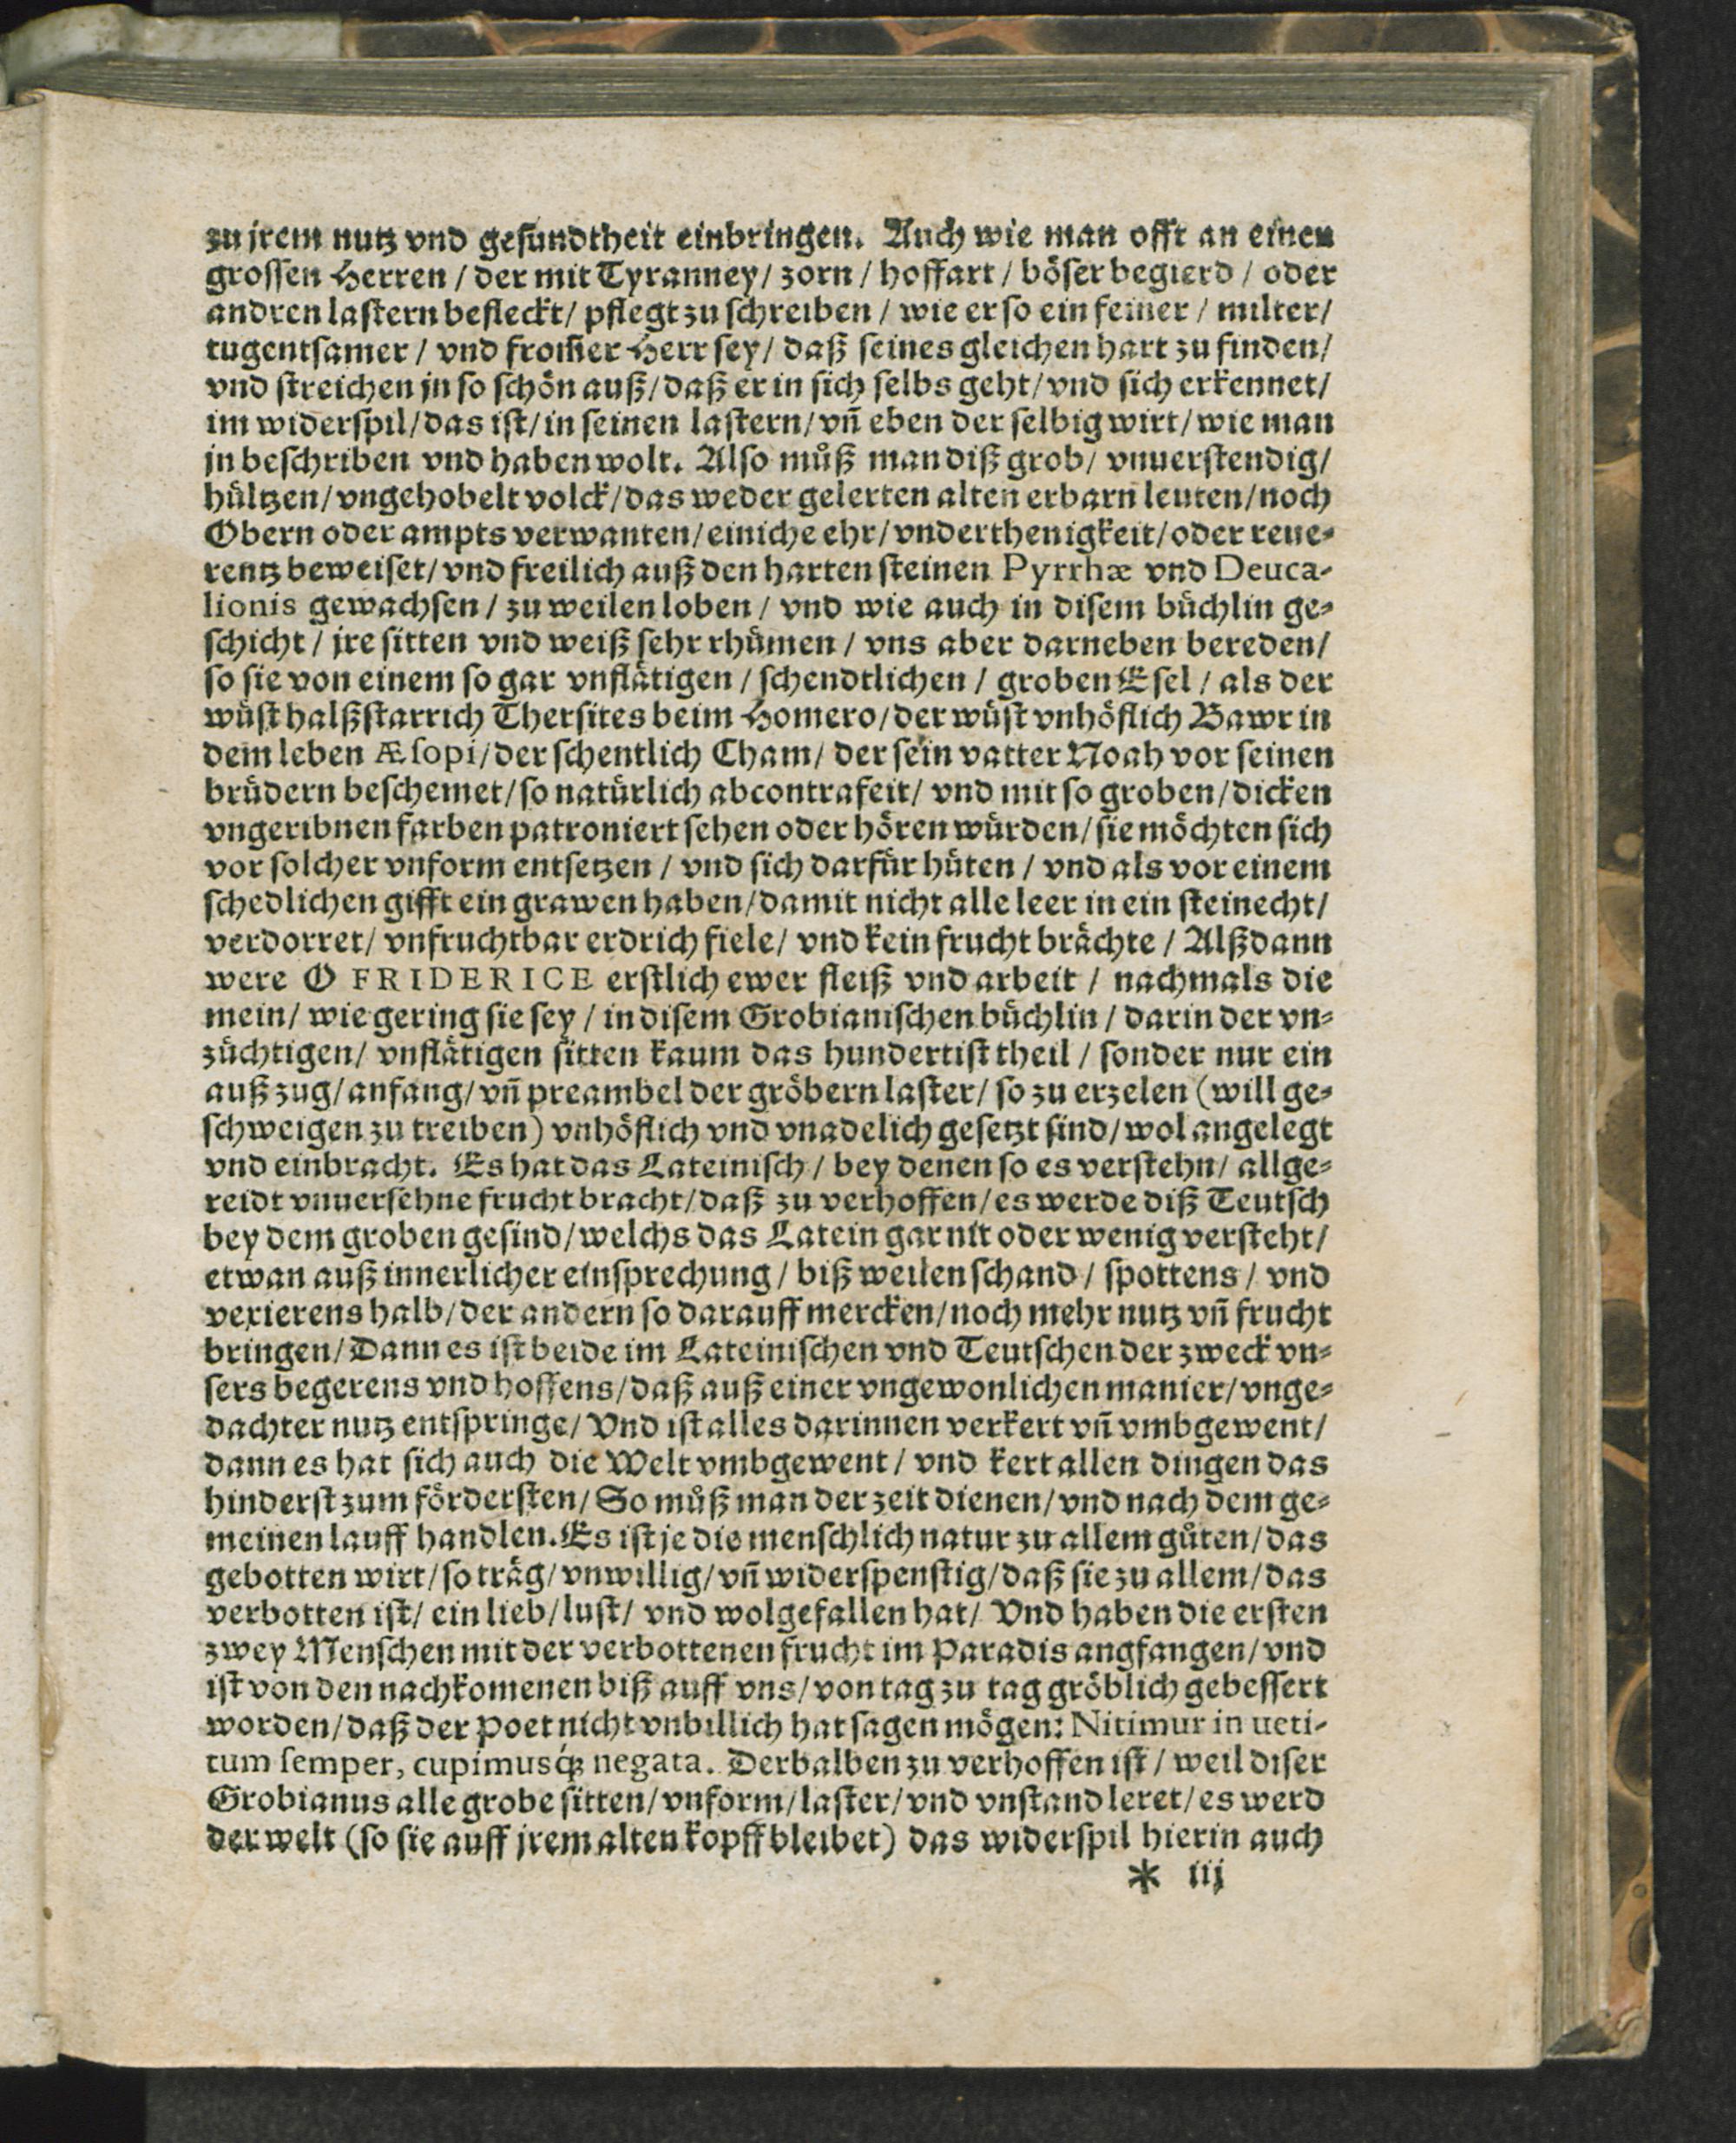 zu jrem nutz vnd gesundtheit einbringen. Auch wie man offt an einen
grossen Herren / der mit Tyranney / zorn / hoffart / böser begierd / oder
andren lastern befleckt / pflegt zu schreiben / wie er so ein feiner / milter /
tugentsamer / vnd from̃er Herr sey / daß seines gleichen hart zu finden /
vnd streichen jn so schön auß / daß er in sich selbs geht / vnd sich erkennet /
im widerspil / das ist / in seinen lastern / vñ eben der selbig wirt / wie man
jn beschriben vnd haben wolt. Also můß man diß grob / vnuerstendig /
hültzen / vngehobelt volck / das weder gelerten alten erbarn leuten / noch
Obern oder ampts verwanten / einiche ehr / vnderthenigkeit / oder reue-
rentz beweiset / vnd freilich auß den harten steinen Pyrrhæ vnd Deuca-
lionis gewachsen / zu weilen loben / vnd wie auch in disem büchlin ge-
schicht / jre sitten vnd weiß sehr rhümen / vns aber darneben bereden /
so sie von einem so gar vnflätigen / schendtlichen / groben Esel / als der
wüst halßstarrich Thersites beim Homero / der wüst vnhöflich Bawr in
dem leben Æsopi / der schentlich Cham / der sein vatter Noah vor seinen
brüdern beschemet / so natürlich abcontrafeit / vnd mit so groben / dicken
vngeribnen farben patroniert sehen oder hören würden / sie möchten sich
vor solcher vnform entsetzen / vnd sich darfür hüten / vnd als vor einem
schedlichen gifft ein grawen haben / damit nicht alle leer in ein steinecht /
verdorret / vnfruchtbar erdrich fiele / vnd kein frucht brächte / Alßdann
were O FRIDERICE erstlich ewer fleiß vnd arbeit / nachmals die
mein / wie gering sie sey / in disem Grobianischen büchlin / darin der vn-
züchtigen / vnflätigen sitten kaum das hundertist theil / sonder nur ein
auß zug / anfang / vñ preambel der gröbern laster / so zu erzelen (will ge-
schweigen zu treiben) vnhöflich vnd vnadelich gesetzt sind / wol angelegt
vnd einbracht. Es hat das Lateinisch / bey denen so es verstehn / allge-
reidt vnuersehne frucht bracht / daß zu verhoffen / es werde diß Teutsch
bey dem groben gesind / welchs das Latein gar nit oder wenig versteht /
etwan auß innerlicher einsprechung / biß weilen schand / spottens / vnd
vexierens halb / der andern so darauff mercken / noch mehr nutz vñ frucht
bringen / Dann es ist beide im Lateinischen vnd Teutschen der zweck vn-
sers begerens vnd hoffens / daß auß einer vngewonlichen manier / vnge-
dachter nutz entspringe / Vnd ist alles darinnen verkert vñ vmbgewent /
dann es hat sich auch die Welt vmbgewent / vnd kert allen dingen das
hinderst zum fördersten / So můß man der zeit dienen / vnd nach dem ge-
meinen lauff handlen. Es ist je die menschlich natur zu allem gůten / das
gebotten wirt / so träg / vnwillig / vñ widerspenstig / daß sie zu allem / das
verbotten ist / ein lieb / lust / vnd wolgefallen hat / Vnd haben die ersten
zwey Menschen mit der verbottenen frucht im Paradis angfangen / vnd
ist von den nachkomenen biß auff vns / von tag zu tag gröblich gebessert
worden / daß der Poet nicht vnbillich hat sagen mögen: Nitimur in ueti-
tum semper, cupimusq́ꝫ negata. Derhalben zu verhoffen ist / weil diser
Grobianus alle grobe sitten / vnform / laster / vnd vnstand leret / es werd
der welt (so sie auff jrem alten kopff bleibet) das widerspil hierin auch
* iij